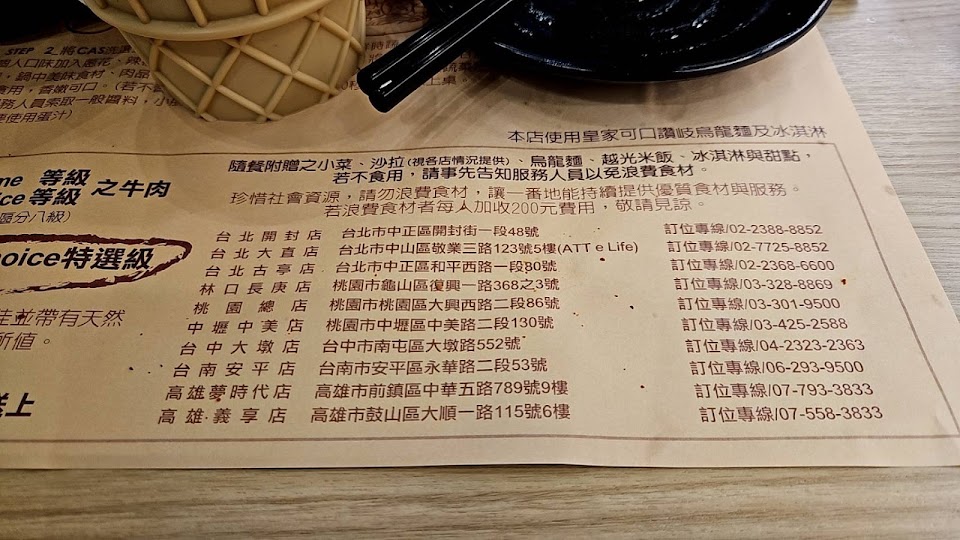 STEP 2. 將CAS
人口味加入蔥花、辣
鍋中美味食材、肉品
食用，香嫩可口。（若不
務人員索取一般醬料，小
使用蛋汁）
本店使用皇家可口讚岐烏龍麵及冰淇淋
隨餐附贈之小菜、沙拉(視各店情況提供)、烏龍麵、越光米飯、冰淇淋與甜點，
若不食用，請事先告知服務人員以免浪費食材。
珍惜社會資源，請勿浪費食材，讓一番地能持續提供優質食材與服務。
若浪費食材者每人加收200元費用，敬請見諒。
me 等級
ice 等級 之牛肉
區分八級）
oice特選級
佳並帶有天然
所值。
送上
台北開封店 台北市中正區開封街一段48號 訂位專線/02-2388-8852
台北大直店 台北市中山區敬業三路123號5樓(ATT e Life) 訂位專線/02-7725-8852
台北古亭店 台北市中正區和平西路一段80號 訂位專線/02-2368-6600
林口長庚店 桃園市龜山區復興一路368之3號 訂位專線/03-328-8869
桃園總店 桃園市桃園區大興西路二段86號 訂位專線/03-301-9500
中壢中美店 桃園市中壢區中美路二段130號 訂位專線/03-425-2588
台中大墩店 台中市南屯區大墩路552號 訂位專線/04-2323-2363
台南安平店 台南市安平區永華路二段53號 訂位專線/06-293-9500
高雄夢時代店 高雄市前鎮區中華五路789號9樓 訂位專線/07-793-3833
高雄義享店 高雄市鼓山區大順一路115號6樓 訂位專線/07-558-3833